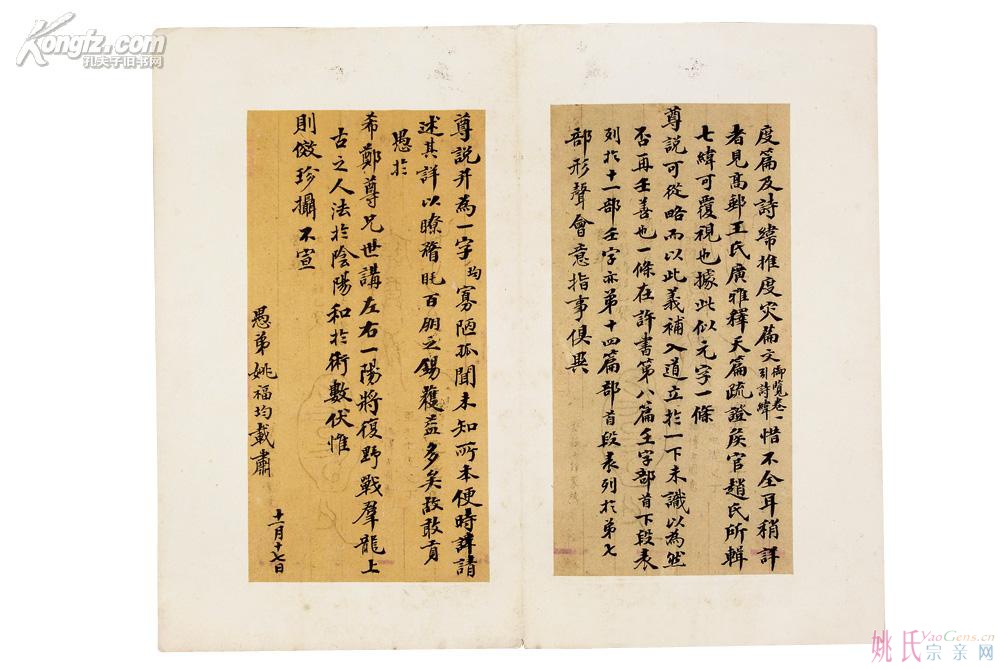 度篇及詩緯推度災篇文御覽卷一引詩緯惜不全耳稍詳
者見高郵王氏廣雅釋天篇疏證矦官趙氏所輯
七緯可覆視也據此似元字一條
尊説可從略而以此義補入道立於一下未識以為然
否再壬善也一條在許書第八篇壬字部首下段表
列於十一部壬字亦第十四篇部首段表列於第七
部形聲會意指事俱異
尊說并為一字均寡陋孤聞未知所本便時諱請
述其詳以瞭瞀眊百朋之錫獲益多矣故敢貢
愚於
希鄭尊兄世講左右一陽將復野戰羣龍上
古之人法於陰陽和於術數伏惟
則傚珍攝不宣
愚弟姚福均載肅
十一月十七日
Kongfz.com
孔夫子旧书网
YaoGens.cn
姚氏宗亲网